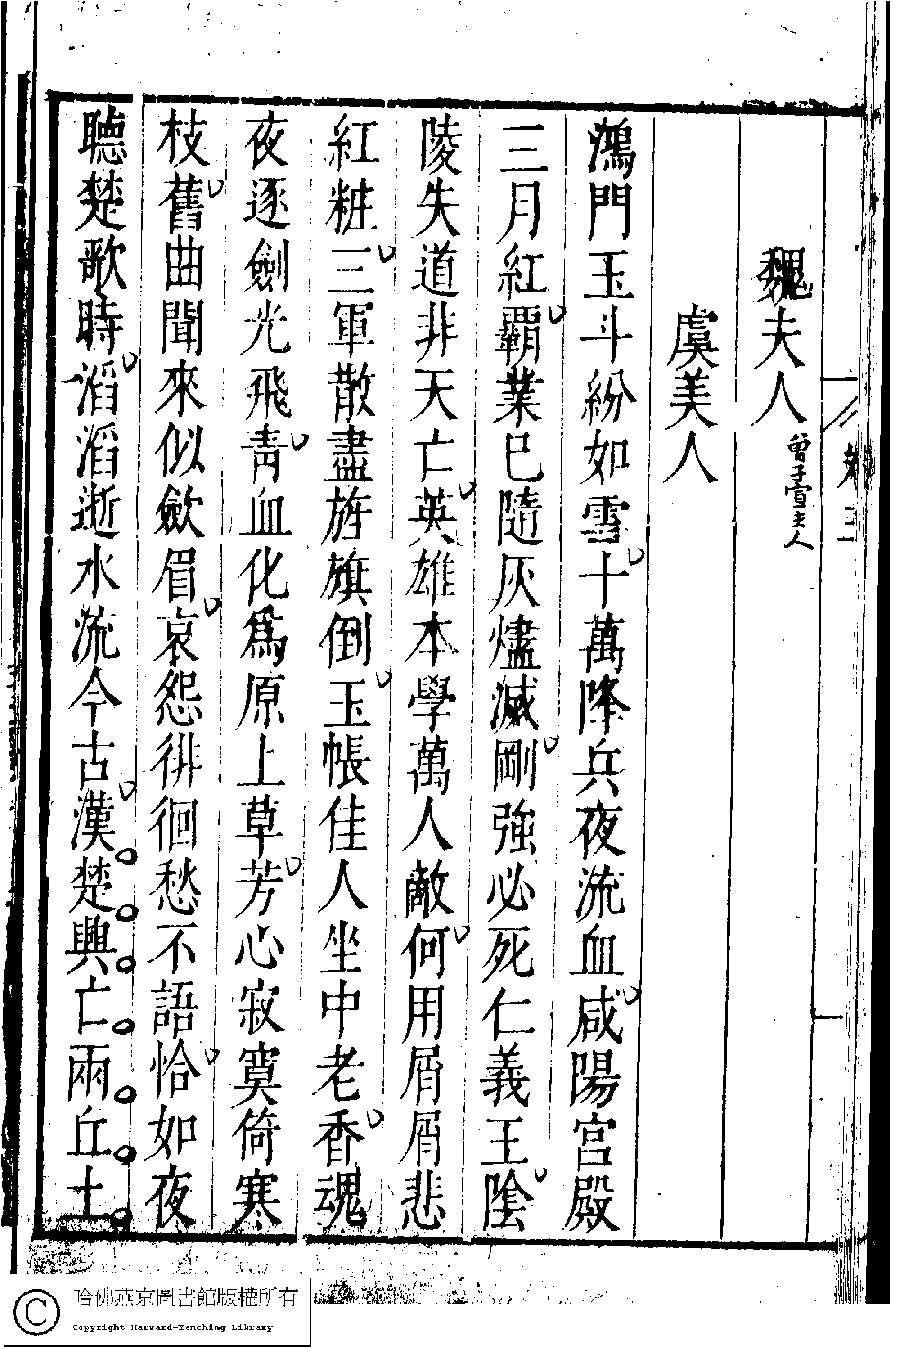 魏夫人曾子宣夫人
虞美人
鴻門玉斗紛如雪十萬降兵夜流血咸陽宫殿
三月紅覇業已隨灰燼滅剛強必死仁義王陰
陵失道非天亡英雄本學萬人敵何用屑屑悲
紅粧三軍散盡旌旗倒玉帳佳人坐中老香魂
夜逐劍光飛青血化爲原上草芳心寂寞倚寒
枝舊曲聞來似歛眉哀怨徘徊愁不語恰如夜
聽楚歌時滔滔逝水流今古漢楚興亡兩丘土
哈佛燕京圖書館版權所有
Copyright Harvard-Yenching Library